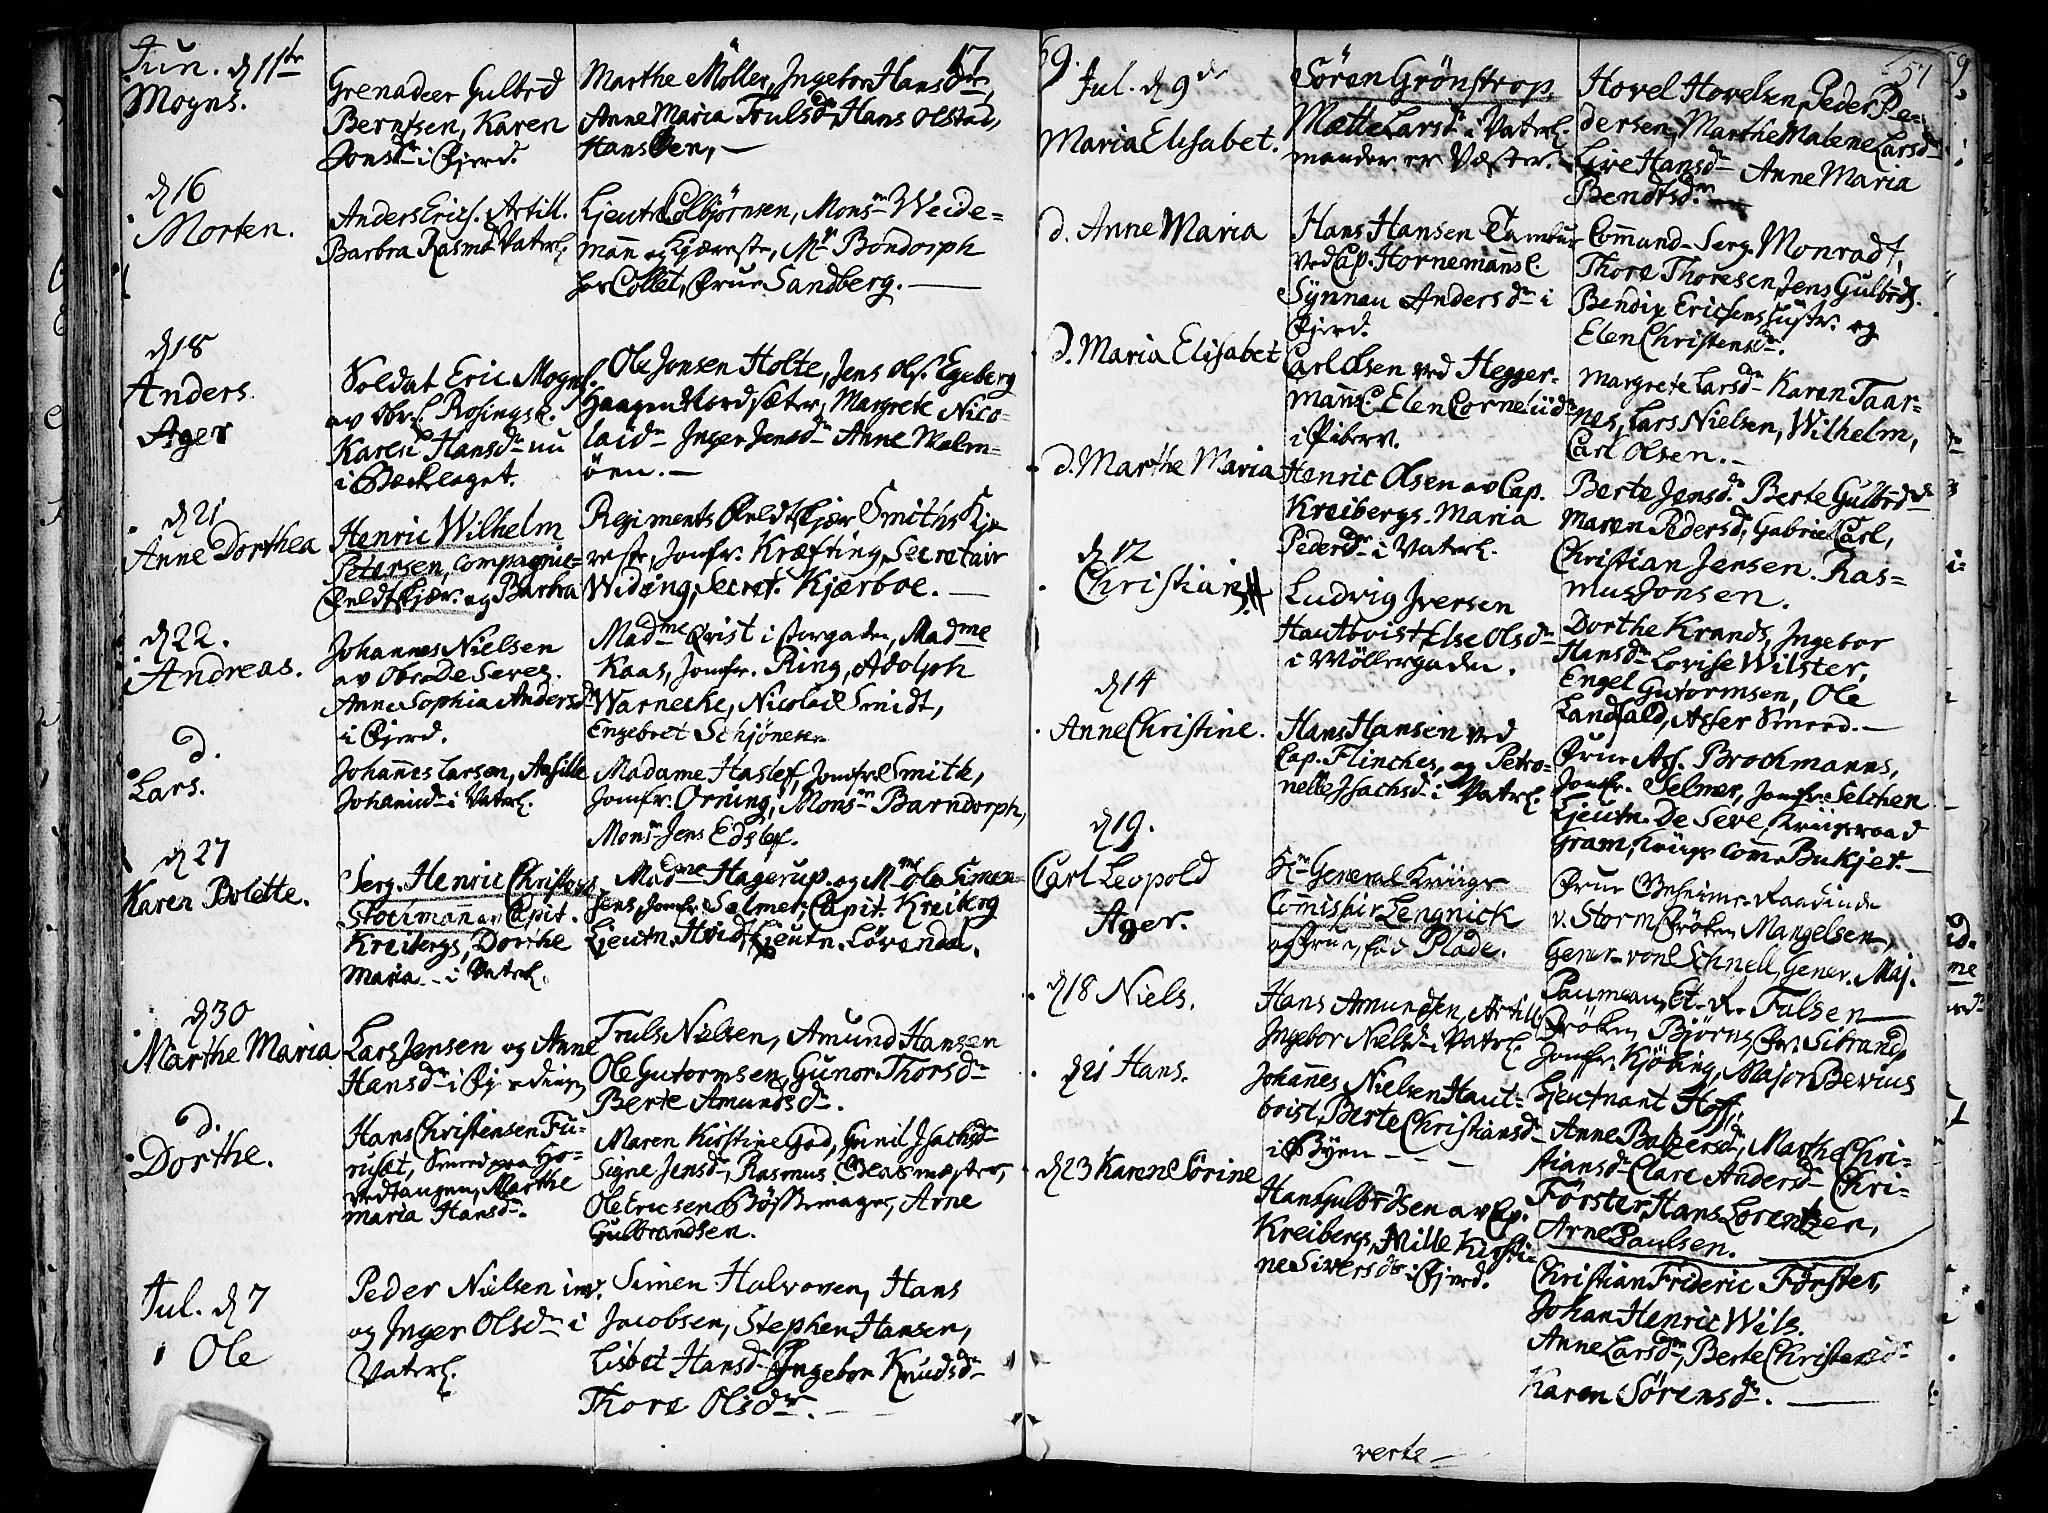 Jun. d 11te
Mogns.
Grenadeer Gulbrd
Berntsen, Karen
Jonsdr i Fjerd.
17
Marthe Möller, Ingebor Hansdr,
Anne Maria Trulsdr, Hans Olstad,
Hans Een, —
d 16
Morten.
Anders Erics. Artill.
Barbra Rasmd Vaterl.
Ljeutn Colbjörnsen, Monsr Weide-
mann og Kjæreste, Mr Bondorph
hos Collet, Frue Sandberg. —
d 18
Anders.
Ager
Soldat Eric Mogns.
av Obrl Rosings C.
Karen Hansdr nu
i Bechlaget.
Ole Jonsen Holte, Jens Ols. Egeberg
Haagen Nordsæter, Margrete Nico-
laidr Inger Jensdr Anne Malm-
öen. —
d 21
Anne Dorthea
Henric Wilhelm
Petersen, Compagnie-
Feldtskjær. og Barbra
Regiments Feldtskjær Smiths Kje-
reste, Jomfr. Kræfting, Secretair
Widing, Secret. Kjærboe. —
d 22.
Andreas.
Johannes Nielsen
av Obr. De Seves.
Anne Sophia Andersdr
i Fjerd.
Madme Qvist i Storgaden, Madme
Kaas, Jomfr. Ring, Adolph
Warnecke, Nicolai Smidt,
Engebret Schjönesen
d.
Lars.
Johannes Larsen, Ansille
Johannd i Vaterl.
Madame Haslef, Jomfr Smith,
Jomfr. Orning, Monsr Barndorph,
Monsr Jens Edslef.
d 27
Karen Bolette.
Serg. Henric Christoph
Stochmann av Capit.
Kreibergs, Dorthe
Maria — i Vaterl.
Madme Hagerup. og Mme Ole Simen-
sens, Jomfr. Selmer, Capit. Kreiberg
Ljeutn. Hvid, Ljeutn. Lövendal.
d 30
Marthe Maria
Lars Jensen og Anne
Hansdr i Fjerdingen
Truls Nielsen, Amund Hansen
Ole Gutormsen, Gunor Thorsdr
Berte Amundsdr.
d.
Dorthe.
Hans Christensen Fu-
ruset, Smed paa Ho-
vedtangen, Marthe
Maria Hansdr.
Maren Kirstine Gad, Gunil Isachsdr
Signe Jensdr, Rasmus Glasmæster,
Ole Ericsen Bössemager, Arne
Gulbrandsen.
Jul. d 7
Ole
Peder Nielsen inv.
og Inger Olsdr i
Vaterl.
Simen Halvorsen, Hans
Jacobsen, Stephen Hansen,
Lisbet Hansdr Ingebor Knudsdr
Thore Olsdr. —
59.
Jul. d 9de
Maria Elisabet.
Sören Grönstrop.
Mætte Larsdr i Vaterl.
57
Hovel Hovelsen, Peder Pe-
dersen, Marthe Malene Larsdr
Live Hansdr Anne Maria
Bendtsdr.
d. Anne Maria
Hans Hansen Tambur
ved Cap. Hornemanns C.
Synnau Andersdr i
Fjerd.
Command- Serg. Monradt,
Thore Thoresen, Jens Gulbrds.
Bendix Ericsens Hustr. og
Elen Christensdr.
d. Maria Elisabet
Carl Olsen ved Hegger-
manns C. Elen Corneliidr
i Piberv.
Margrete Larsdr Karen Taar-
nes, Lars Nielsen, Wilhelm,
Carl Olsen. —
d. Marthe Maria
Henric Olsen av Cap.
Kreibergs. Maria
Pedersdr i Vaterl.
Berte Jensdr. Berte Gulbrdr
Maren Pedersdr, Gabriel Carl,
Christian Jensen. Ras-
mus Jonsen.
d 12
Christian
Ludvig Iversen
Hautboist Else Olsdr
i Möllergaden.
Dorthe Krands, Ingebor
Hansdr Lovise Wilster,
Engel Gutormsen, Ole
Landfald, Asser Smed. —
d 14
Anne Christine.
Hans Hansen ved
Cap. Flinches, og Petro-
nelle Isachsdr i Vaterl.
Frue Ass. Brochmanns,
Jomfr. Selmer, Jomfr. Selchen
Ljeutn. De Seve, Kriigsraad
Gram, Kriigs Comm. Bukjer. —
d 19.
Carl Leopold
Ager.
Hr General Kriigs
Comissair Lengnick
og Frue, föd Plade.
Frue Geheime-Raadinde
v. Storm Fröken Mangelsen,
Gener- von Schnell, Gener. Maj.
Paumeau, Et. R. Falsen
Fröken Björns, Fr. Sibrand,
Jomfr. Kjöbing, Major Bevius
Ljeutnant Hoff.
d 18 Niels.
Hans Amundsen, Artill.
Ingebor Nielsdr i Vaterl.
d 21 Hans.
Johannes Nielsen Haut-
boist, Berte Christiansdr
i Byen — — —
Anne Baltzersdr, Marthe Chri-
stiansdr Clare Andersdr Chri-
Förster, Hans Lorentzen,
Arne Paulsen.
d 23 Karen Sörine
Hans Gulbrdsen av Cp.
Kreibergs, Mille Kirsti-
ne Siversdr i Fjerd.
Christian Frideric Förster,
Johan Henric Wils.
Anne Larsdr, Berte Christensdr
Karen Sörensdr. —
verte —